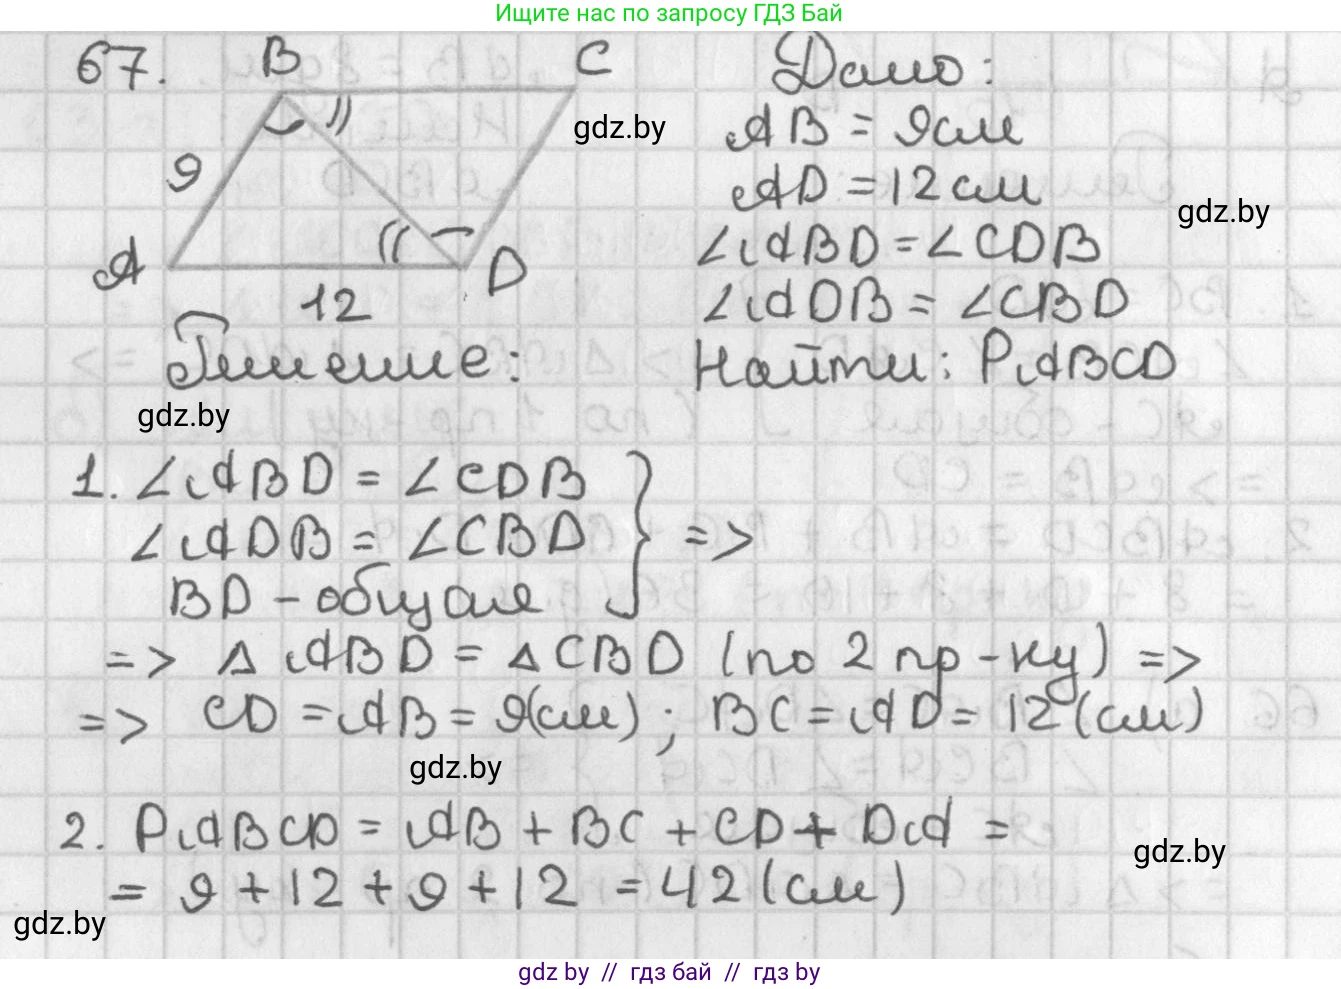 Ищите нас по запросу ГДЗ Бай
67. B C Дано:
gdz.by
9 AB = 9см
AD = 12см
gdz.by
∠ABD = ∠CDB
A D
12 ∠ADB = ∠CBD
Решение: Найти: PABCD
gdz.by
1. ∠ABD = ∠CDB
∠ADB = ∠CBD } =>
BD - общая
=> Δ ABD = Δ CBD (по 2 пр-ку) =>
=> CD = AB = 9(см) ; BC = AD = 12(см)
gdz.by
2. PABCD = AB + BC + CD + DA =
gdz.by
= 9 + 12 + 9 + 12 = 42 (см)
gdz.by
gdz by // гдз бай // гдз by